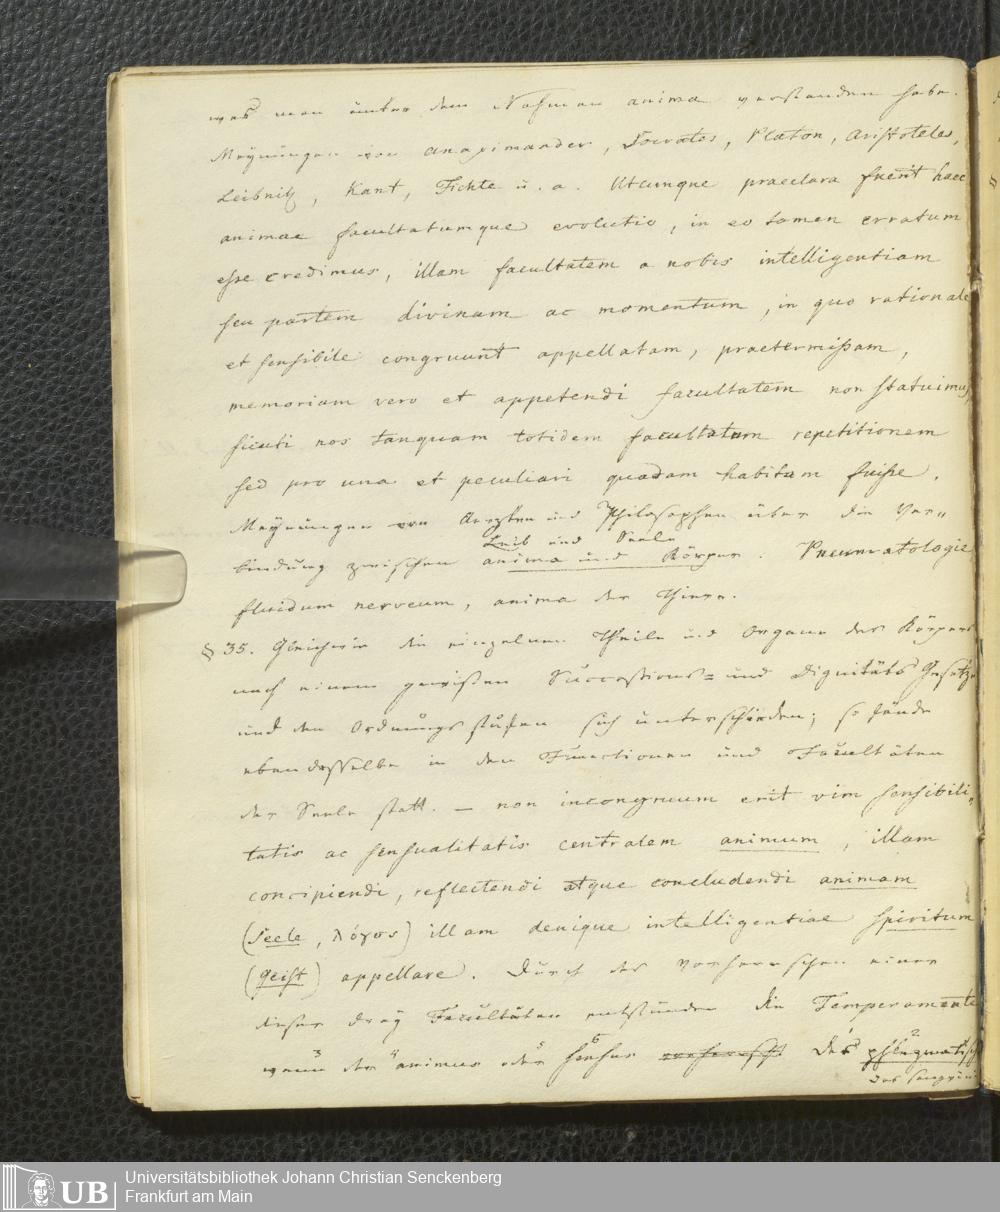 was man unter dem Nahmen anima verstanden habe.
Meynungen von Anaximander, Socrates, Platon, Aristoteles,
Leibnitz, Kant, Fichte u. a. Utcunque praeclara fuerit haec
animae facultatumque evolutio, in eo tamen erratum
esse credimus, illam facultatem a nobis intelligentiam
seu partem divinam ac momentum, in quo rationale
et sensibile congruunt appellatam, praetermißam,
memoriam vero et appetendi facultatem non statuimus,
sicuti nos tanquam totidem facultatum repetitionem
sed pro una et peculiari quadam habitam fuiße.
Meynungen von Aerzten und Philosophen über die Ver-
Leib und Seele
bindung zwischen anima und Körper. Pneumatologie
fluidum nerveum, anima der Thiere.
§ 35. Gleichwie die einzelnen Theile und Organe des Körpers
nach einem gewißen Successions= und Dignitäts Gesetze
und den Ordnungsstufen sich unterschieden; so fände
eben dasselbe in den Functionen und Facultäten
der Seele statt. — non incongruum erit vim sensibili-
tatis ac sensualitatis centralem animum, illam
concipiendi, reflectendi atque concludendi animam
(Seele, λόγος) illam denique intelligentiae spiritum
(Geist) appellare. Durch das Vorherrschen einer
dieser drey Facultäten entstünden die Temperamente
wenn der animus oder sensus vorherrscht das phlegmatisch
das sanguini
Universitätsbibliothek Johann Christian Senckenberg
Frankfurt am Main
UB